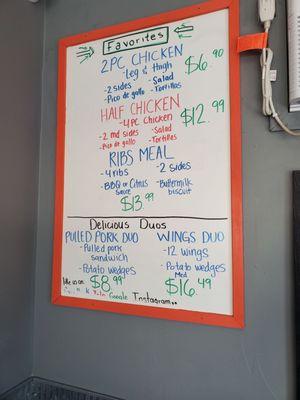 Favorites
2PC CHICKEN $6.90
- Leg & thigh
- 2 sides - Salad
- Pico de gallo - Tortillas
HALF CHICKEN $12.99
- 4PC Chicken
- 2 md sides - Salad
- Pico de gallo - Tortillas
RIBS MEAL
- 4 ribs - 2 sides
- BBQ or Citrus sauce - Buttermilk biscuit
$13.99
Delicious Duos
PULLED PORK DUO WINGS DUO
- Pulled pork sandwich - 12 wings
- Potato wedges - Potato wedges Med
like us on $8.99 $16.49
Google Instagram